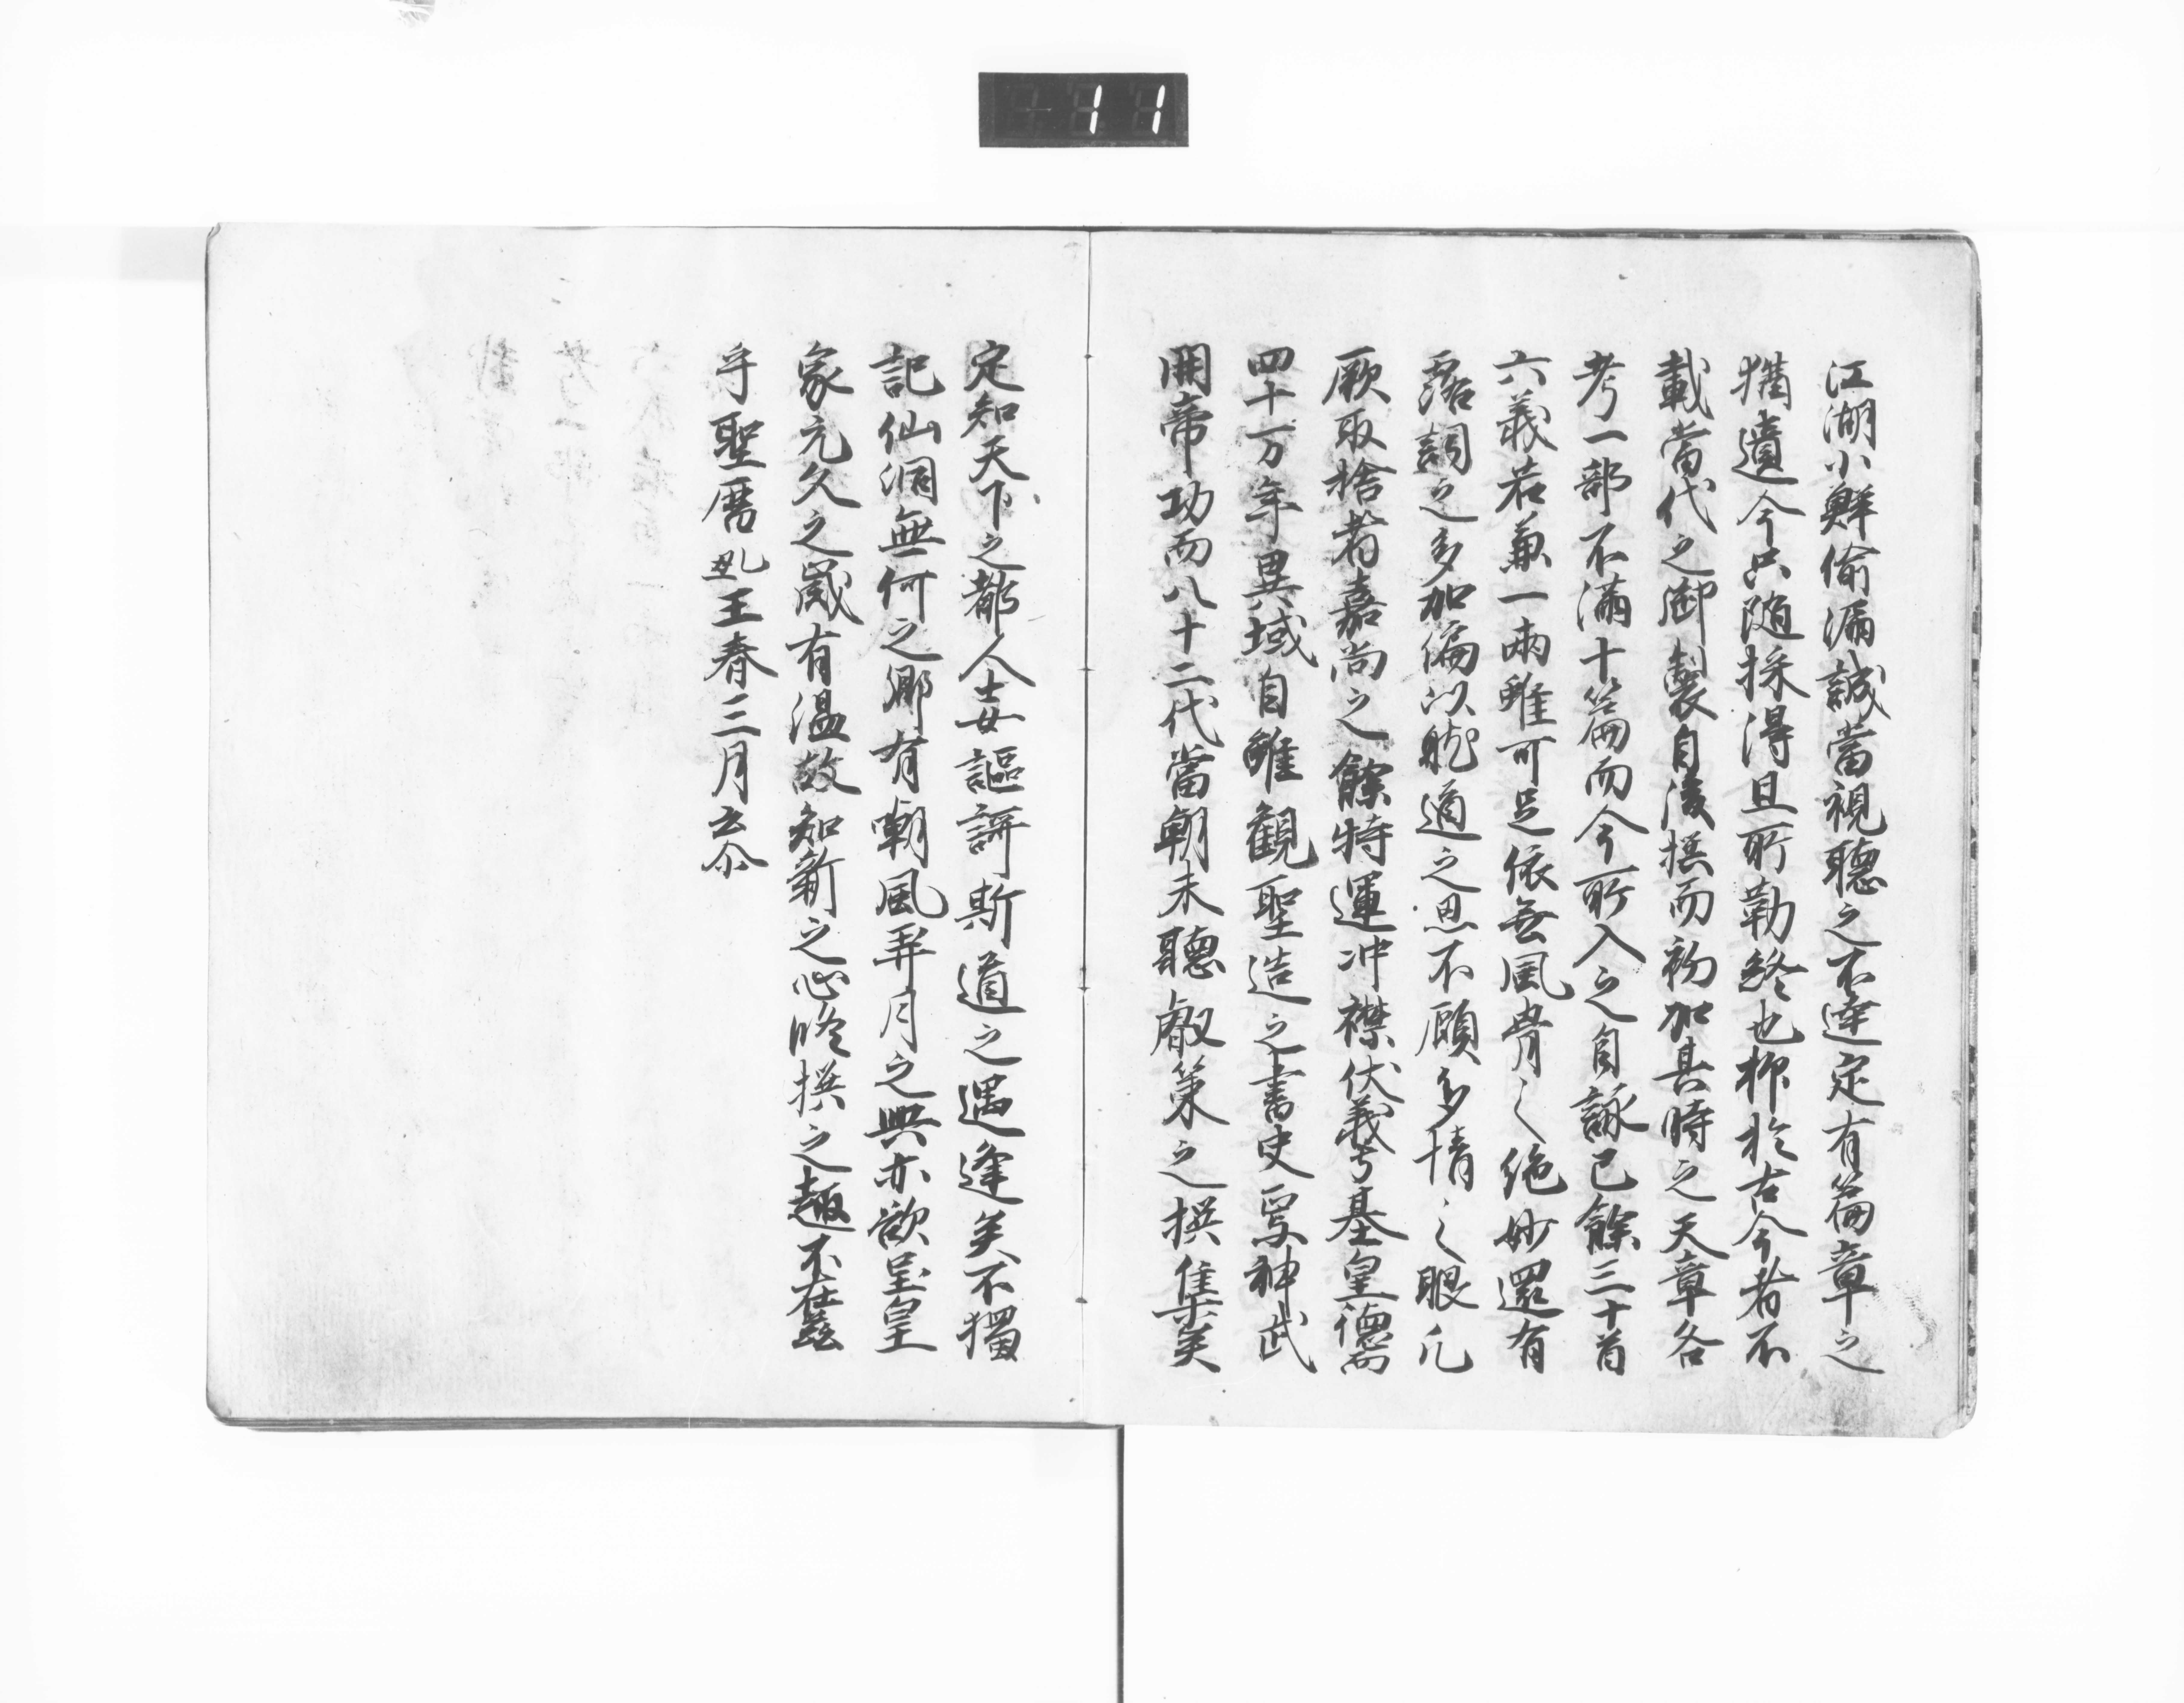 11
江湖小鮮偷漏誠當視聽之不達定有篇章之
猶遺今只随採得且所勒終也抑於古今者不
載當代之御製自後撰而初加其時之天章各
考一部不滿十篇而今所入之自詠已餘三十首
六義若兼一兩雖可足依無風骨之絶妙還有
露詞之多加偏以躭道之思不顧多情之眼凡
厥取捨者嘉尚之餘特運冲襟伏羲号基皇德而
四十万年異域自雖觀聖造之書史写神武
開帝功而八十二代當朝未聽叡策之撰集矣
定知天下之都人士女謳謌斯道之遇逢矣不獨
記仙洞無何之鄉有嘲風弄月之興亦欲呈皇
家元久之歲有温故知新之心修撰之趣不在茲
乎聖暦乙丑王春三月云尒